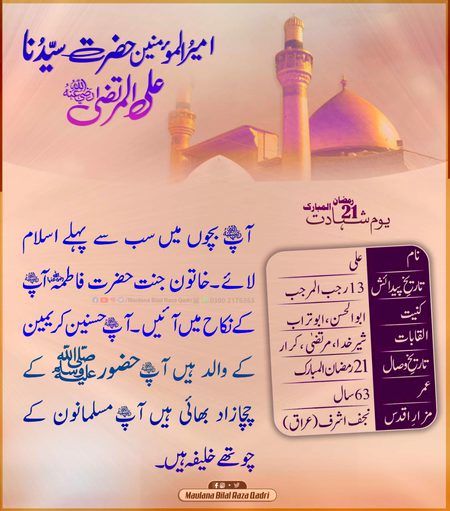 امیرُ المؤمنین حضرت سیّدُنا
علی المرتضیٰ رضی اللہ عنہ
21 رمضان المبارک
یوم شہادت
نام علی
تاریخ پیدائش 13 رجب المرجب
کنیت ابوالحسن، ابوتراب
القابات شیر خدا، مرتضیٰ، کرار
تاریخ وصال 21 رمضان المبارک
عمر 63 سال
مزار اقدس نجف اشرف (عراق)
آپ بچوں میں سب سے پہلے اسلام
لائے۔ خاتون جنت حضرت فاطمہ آپ
/Maulana Bilal Raza Qadri
کے نکاح میں آئیں۔ آپ حسنین کریمین
کے والد ہیں آپ حضور ﷺ کے
چچازاد بھائی ہیں آپ مسلمانوں کے
چوتھے خلیفہ ہیں۔
Maulana Bilal Raza Qadri